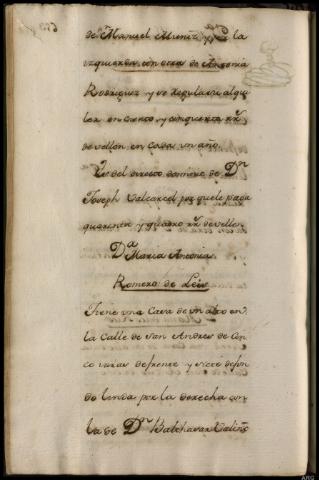 de Manuel Muñiz y Pr. la
izquierda con otra de Antonia
Rodriguez y se regula su alqui
ler en ciento y cinquenta rr.
de vellon en cada un año.
Es del directo dominio de Dn.
Joseph Valcarcel por que le paga
quarenta y quatro rr. de vellon
Da. Maria Antonia
Romero de Leis
Tiene una Casa de un alto en
la Calle de San Andres de Cin
co varas de frente y siete de fon
do linda por la derecha con
la de Dn. Balthasar